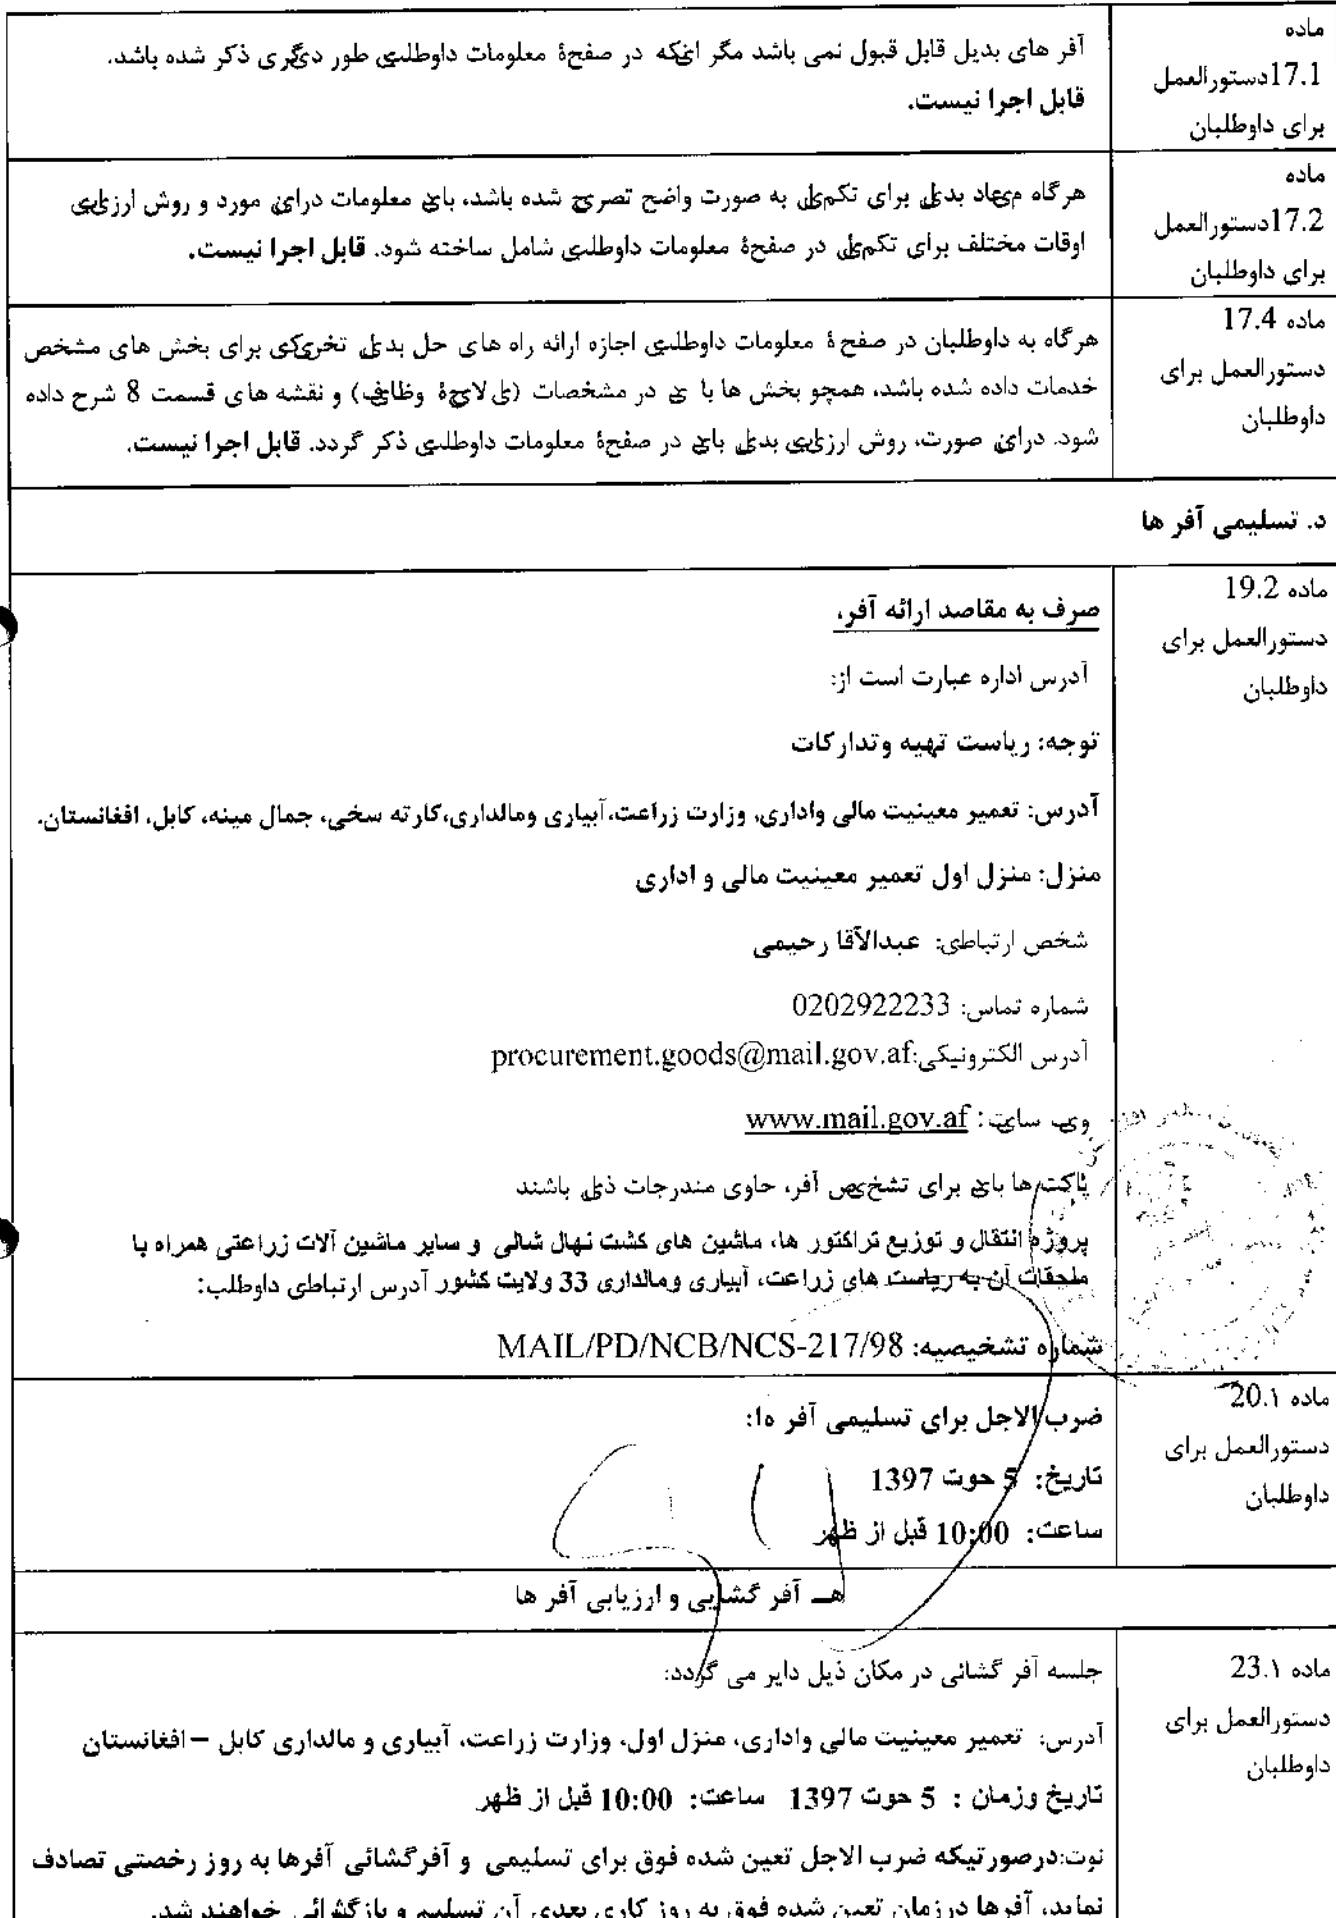 ماده
17.1دستورالعمل
برای داوطلبان
آفر های بدیل قابل قبول نمی باشد مگر اینکه در صفحۀ معلومات داوطلبی طور دیگری ذکر شده باشد.
قابل اجرا نیست.
ماده
17.2دستورالعمل
برای داوطلبان
هرگاه میعاد بدیل برای تکمیل به صورت واضح تصریح شده باشد، باید معلومات دراین مورد و روش ارزیابی
اوقات مختلف برای تکمیل در صفحۀ معلومات داوطلبی شامل ساخته شود. قابل اجرا نیست.
ماده 17.4
دستورالعمل برای
داوطلبان
هرگاه به داوطلبان در صفحۀ معلومات داوطلبی اجازه ارائه راه های حل بدیل تخنیکی برای بخش های مشخص
خدمات داده شده باشد، همچو بخش ها باید در مشخصات (یا لایحۀ وظایف) و نقشه های قسمت 8 شرح داده
شود. دراین صورت، روش ارزیابی بدیل باید در صفحۀ معلومات داوطلبی ذکر گردد. قابل اجرا نیست.
د. تسلیمی آفر ها
ماده 19.2
دستورالعمل برای
داوطلبان
صرف به مقاصد ارائه آفر،
آدرس اداره عبارت است از:
توجه: ریاست تهیه وتدارکات
آدرس: تعمیر معینیت مالی واداری، وزارت زراعت،آبیاری ومالداری،کارته سخی، جمال مینه، کابل، افغانستان.
منزل: منزل اول تعمیر معینیت مالی و اداری
شخص ارتباطی: عبدالآقا رحیمی
شماره تماس: 0202922233
آدرس الکترونیکی:procurement.goods@mail.gov.af
ویب سایت: www.mail.gov.af
پاکت ها باید برای تشخیص آفر، حاوی مندرجات ذیل باشند
پروژه انتقال و توزیع تراکتور ها، ماشین های کشت نهال شالی و سایر ماشین آلات زراعتی همراه با
ملحقات آن به ریاست های زراعت، آبیاری ومالداری 33 ولایت کشور آدرس ارتباطی داوطلب:
شماره تشخیصیه: MAIL/PD/NCB/NCS-217/98
ماده 20.۱
دستورالعمل برای
داوطلبان
ضرب الاجل برای تسلیمی آفر ها:
تاریخ: 5 حوت 1397
ساعت: 10:00 قبل از ظهر
هـ آفر گشایی و ارزیابی آفر ها
ماده 23.۱
دستورالعمل برای
داوطلبان
جلسه آفر گشائی در مکان ذیل دایر می گردد:
آدرس: تعمیر معینیت مالی واداری، منزل اول، وزارت زراعت، آبیاری و مالداری کابل – افغانستان
تاریخ وزمان : 5 حوت 1397 ساعت: 10:00 قبل از ظهر
نوت:درصورتیکه ضرب الاجل تعین شده فوق برای تسلیمی و آفرگشائی آفرها به روز رخصتی تصادف
نماید، آفرها درزمان تعین شده فوق به روز کاری بعدی آن تسلیم و بازگشائی خواهند شد.